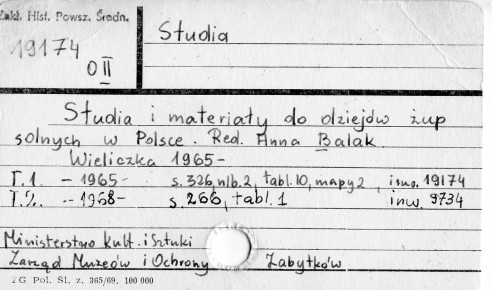 Zakł. Hist. Powsz. Średn.
Studia
19174
O II
Studia i materiały do dziejów żup
solnych w Polsce. Red. Anna Balak
Wieliczka 1965-
T.1. - 1965- s. 326, nlb. 2, tabl. 10, mapy 2, inw. 19174
T.2. - 1968- s. 266, tabl. 1 inw. 9734
Ministerstwo Kult. i Sztuki
Zarząd Muzeów i Ochrony Zabytków
ZG Pol. Śl. z. 365/69. 100 000